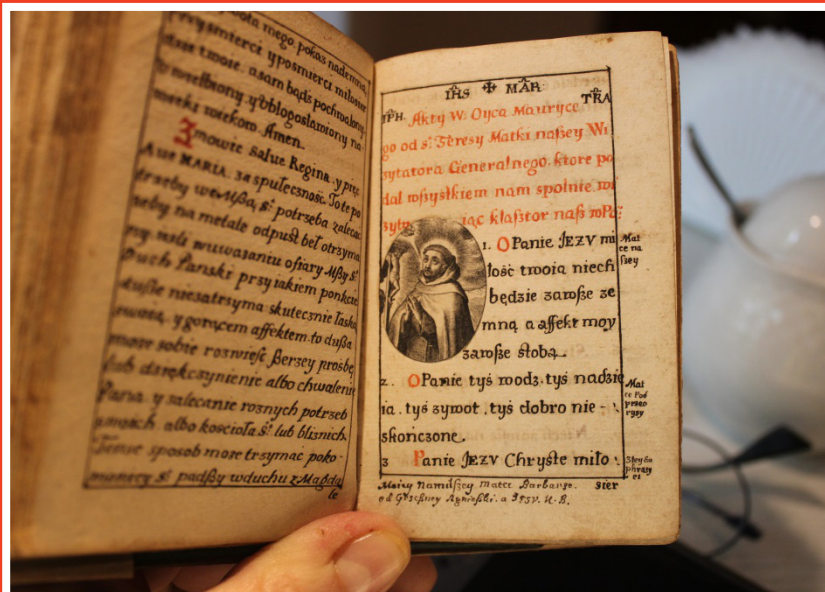 przysmierci yposmierci miłosier
dzie twoie. asam bądz pochwalony.
y wielbiony y błogosławiony na
wieki wiekow. Amen.
Zmowic Salue Regina. y pięc
Aue MARIA. za społecznosc. To te po
trzeby we Mszą s.̂ potrzeba zalecac
zeby na metale odpust beł otrzyma
ny
Duch Panski przy iakiem ponkcie
duszę niezatrzyma skutecznie łaską
swoią, y gorącem affektem. to dusza
może sobie rozwiesc szerzey prosbę
lub dziękczynienie albo chwaleni
Pana. y zalecanie roznych potrzeb
albo koscioła s.̂ lub bliznich.
sposob moze trzymac poko
padszy wduchu z Magda
le
IHS ✠ MAR
IPH. TRA
Akty W. Oyca Mauryce
go od s.̂ Teresy Matki naszey Wi
zytatora Generalnego. ktore po
dał wszystkiem nam spolnie wi
zytu iąc klasztor nasz
1. O Panie JEZV mi
łość twoia niech
będzie zawsze ze
mną a affekt moy
zawsze stobą.
Mat
ce na
szey
2. O Panie tyś wodz. tyś nadzie
ia. tyś zywot. tyś dobro nie -
skończone.
Mat
ce Pod
przeo
ryszy
3 Panie JEZV Chryste miło
sier
Moiey Namilszey matce Barbarze.
od Grzeszney Agnieszki. a